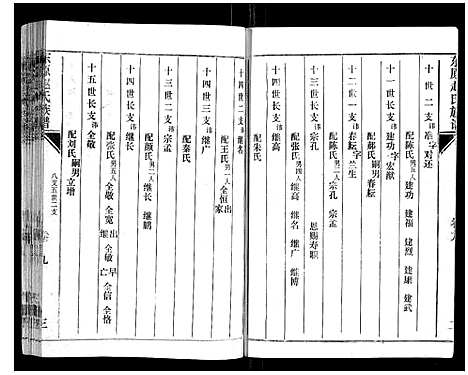 东原赵氏族谱
十世二支讳准字对还
配陈氏男五人建功 建福 建烈 建康 建武
十一世长支讳建功字宏
配郝氏嗣男春耘
十二世长支讳春耘字兰生
配陈氏男二人宗孔 宗孟
十三世长支讳宗孔 恩赐寿职
配张氏男四人继高 继广 继博
十四世长支讳继高
配朱氏
十四世二支讳继广
配王氏男二人全恒出家
配秦氏
十三世二支讳宗孟
配颜氏男二人继长 继鹏
十四世长支讳继长
配张氏男六人全敬 全宽出继 全敏早亡 全信 全恪
十五世长支讳全敬
配刘氏嗣男立增
八支五世二支
九
三
东原赵氏族谱